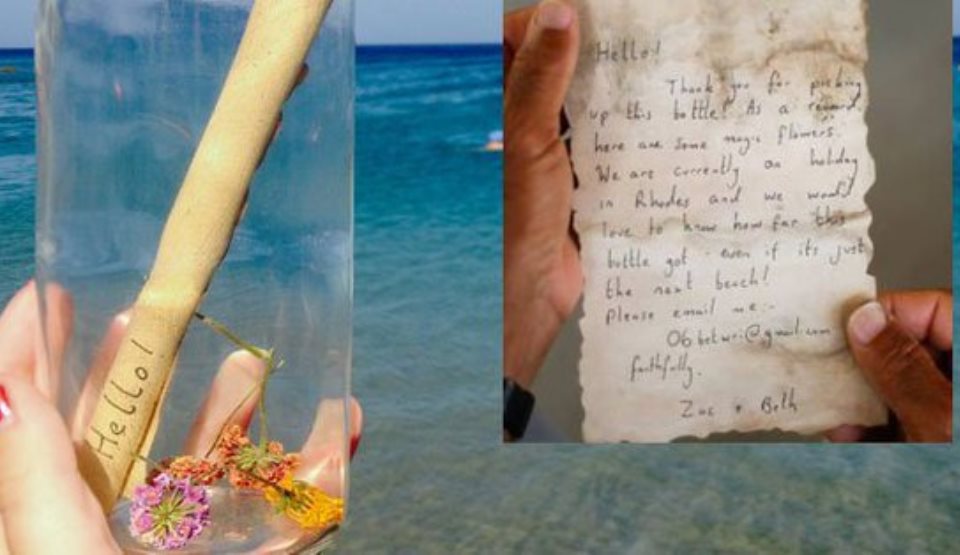 Hello!
Hello!
Thank you for picking
up this bottle! As a reward
here are some magic flowers.
We are currently on holiday
in Rhodes and we would
love to know how far this
bottle got - even if it's just
the next beach!
Please email me:-
06betwri@gmail.com
faithfully,
Zac + Beth